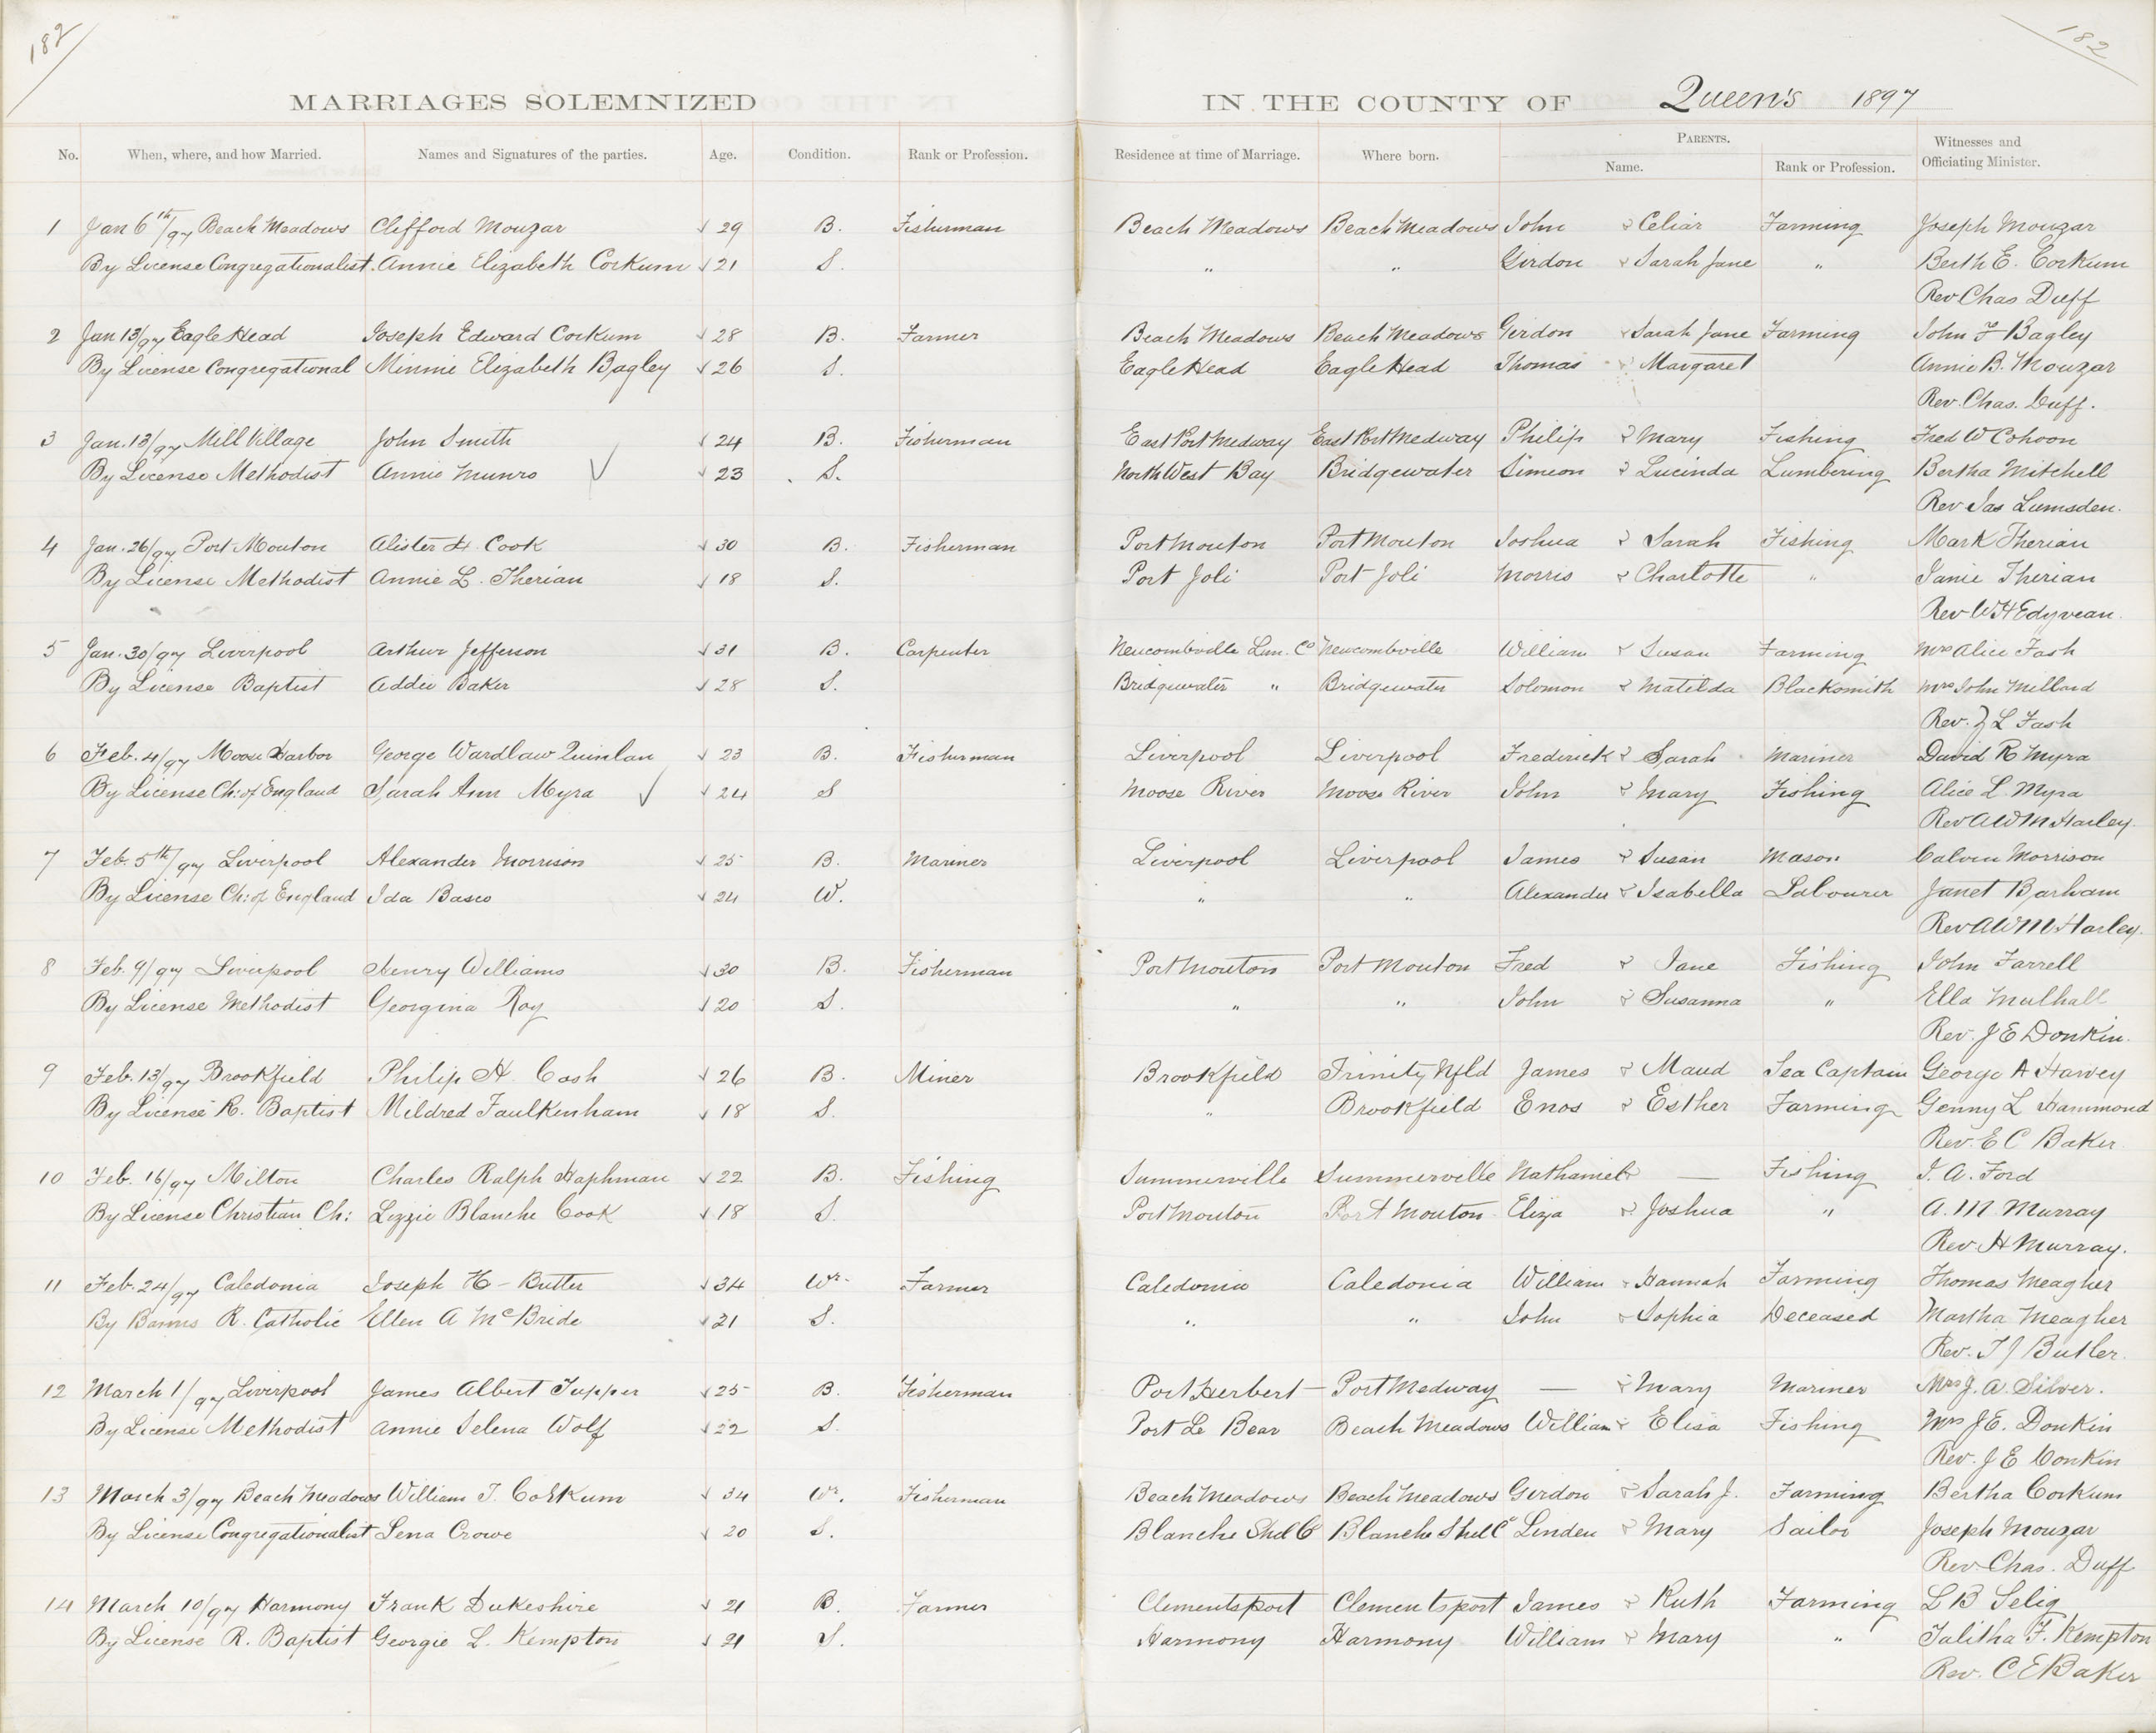 182
182
MARRIAGES SOLEMNIZED IN THE COUNTY OF Queen's 1897
No. When, where, and how Married. Names and Signatures of the parties. Age. Condition. Rank or Profession. Residence at time of Marriage. Where born. PARENTS. Name. Rank or Profession. Witnesses and Officiating Minister.
1 Jan 6th/97 Beach Meadows Clifford Mouzar √ 29 B. Fisherman Beach Meadows Beach Meadows John & Celiar Farming Joseph Mouzar
By License Congregationalist. Annie Elizabeth Corkum √ 21 S. " " Girdon & Sarah Jane " Berth E. Corkum
Rev Chas Duff
2 Jan 13/97 Eagle Head Joseph Edward Corkum √ 28 B. Farmer Beach Meadows Beach Meadows Girdon & Sarah Jane Farming John F Bagley
By License Congregational Minnie Elizabeth Bagley √ 26 S. Eagle Head Eagle Head Thomas & Margaret Annie B. Mouzar
Rev. Chas. Duff.
3 Jan. 13/97 Mill Village John Smith √ 24 B. Fisherman East Port Medway East Port Medway Philip & Mary Fishing Fred W Cohoon
By License Methodist Annie Munro √ √ 23 S. North West Bay Bridgewater Simeon & Lucinda Lumbering Bertha Mitchell
Rev Jas Lumsden.
4 Jan. 26/97 Port Mouton Alister H. Cook √ 30 B. Fisherman Port Mouton Port Mouton Joshua & Sarah Fishing Mark Therian
By License Methodist Annie L. Therian √ 18 S. Port Joli Port Joli Morris & Charlotte " Janie Therian
Rev W H Edyvean.
5 Jan. 30/97 Liverpool Arthur Jefferson √ 31 B. Carpenter Newcombville Lun. Co Newcombville William & Susan Farming Mrs Alice Fash
By License Baptist Addie Baker √ 28 S. Bridgewater " Bridgewater Solomon & Matilda Blacksmith Mrs John Millard
Rev. Z L Fash
6 Feb. 4/97 Moose Harbor George Wardlaw Quinlan √ 23 B. Fisherman Liverpool Liverpool Frederick & Sarah Mariner David R Myra
By License Ch: of England Sarah Ann Myra √ √ 24 S Moose River Moose River John & Mary Fishing Alice L Myra
Rev A W M Harley.
7 Feb. 5th/97 Liverpool Alexander Morrison √ 25 B. Mariner Liverpool Liverpool James & Susan Mason Calvin Morrison
By License Ch: of England Ida Basco √ 24 W. " " Alexander & Isabella Labourer Janet Barham
Rev A W M Harley.
8 Feb. 9/97 Liverpool Henry Williams √ 30 B. Fisherman Port Mouton Port Mouton Fred & Jane Fishing John Farrell
By License Methodist Georgina Roy √ 20 S. " " John & Susanna " Ella Mulhall
Rev. J E Donkin.
9 Feb. 13/97 Brookfield Philip H. Cash √ 26 B. Miner Brookfield Trinity Nfld James & Maud Sea Captain George A Harvey
By License R. Baptist Mildred Faulkenham √ 18 S. " Brookfield Enos & Esther Farming Genny L Hammond
Rev. E C Baker
10 Feb. 16/97 Milton Charles Ralph Haphman √ 22 B. Fishing Summerville Summerville Nathaniel & — Fishing I. A. Ford
By License Christian Ch: Lizzie Blanche Cook √ 18 S. Port Mouton Port Mouton Eliza & Joshua " A. M. Murray
Rev. H Murray.
11 Feb. 24/97 Caledonia Joseph H - Butler √ 34 Wr. Farmer Caledonia Caledonia William & Hannah Farming Thomas Meagher
By Banns R. Catholic Ellen A McBride √ 21 S. " " John & Sophia Deceased Martha Meagher
Rev. T J Butler.
12 March 1/97 Liverpool James Albert Tupper √ 25 B. Fisherman Port Herbert — Port Medway — & Mary Mariner Mrs J. A. Silver.
By License Methodist Annie Selena Wolf √ 22 S. Port Le Bear Beach Meadows William & Elisa Fishing Mrs J E. Donkin
Rev. J E Donkin
13 March 3/97 Beach Meadows William T. Corkum √ 34 Wr. Fisherman Beach Meadows Beach Meadows Girdon & Sarah J. Farming Bertha Corkum
By License Congregationalist Lena Crowe √ 20 S. Blanche Shel Co Blanche Shel Co Linden & Mary Sailor Joseph Mouzar
Rev. Chas. Duff
14 March 10/97 Harmony Frank Dukeshire √ 21 B. Farmer Clementsport Clementsport James & Ruth Farming L B Selig
By License R. Baptist Georgie L. Kempton √ 21 S. Harmony Harmony William & Mary " Talitha F. Kempton
Rev. C E Baker